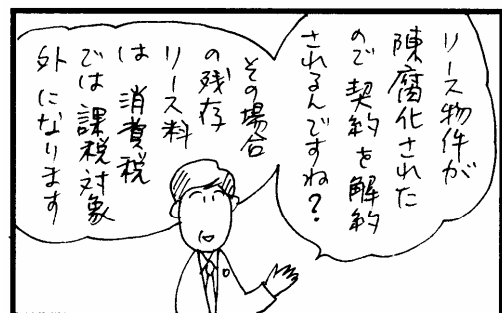 リース物件が
陳腐化された
ので契約を解約
されるんですね?
その場合
の残存
リース料
は消費税
では課税対象
外になります